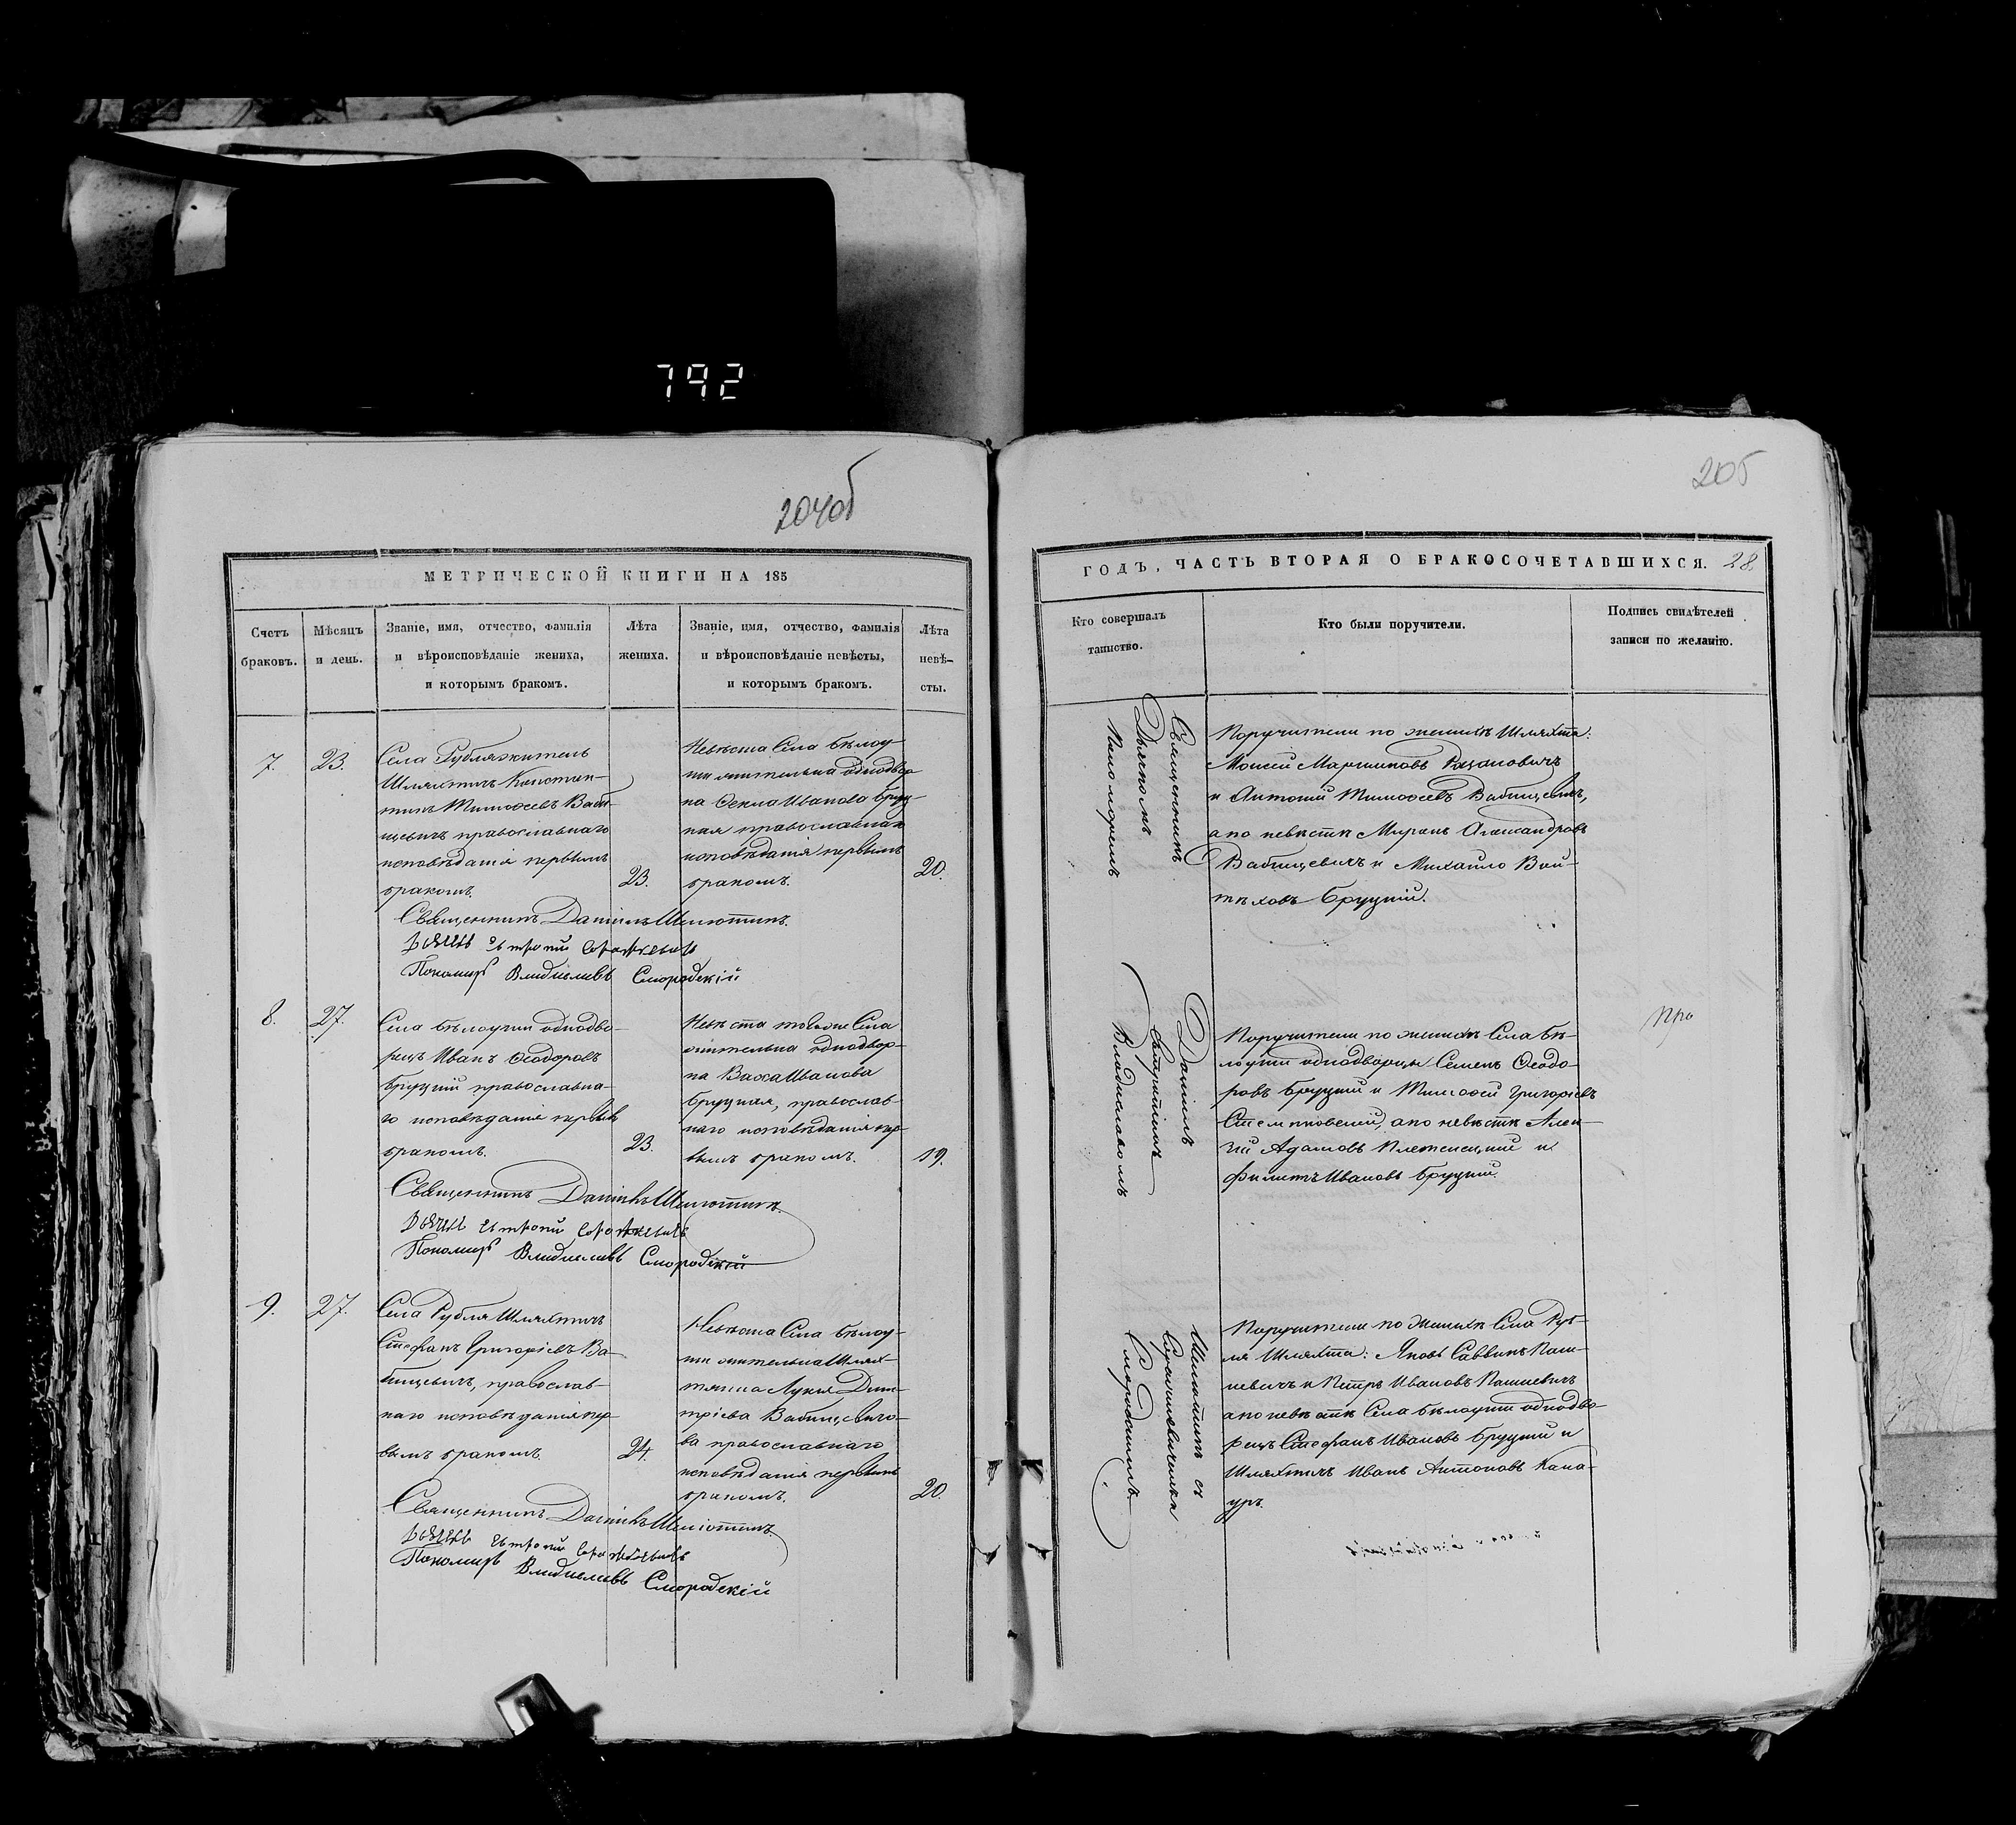 792
204об
МЕТРИЧЕСКОЙ КНИГИ НА 185
Счетъ браковъ.
Мѣсяцъ и день.
Званіе, имя, отчество, фамилія
и вѣроисповѣданіе жениха,
и которымъ бракомъ.
Лѣта жениха.
Званіе, имя, отчество, фамилія
и вѣроисповѣданіе невѣсты,
и которымъ бракомъ.
Лѣта невѣ-
сты.
7.
23.
Села Рубля житель
Шляхтичъ Констан-
тинъ Тимоѳеевъ Ваби-
щевичъ православнаго
исповѣданія первымъ
бракомъ.
23.
Невѣста Села Бѣлоу-
ши жителька однодвор
ка Ѳекла Иванова Бруц-
кая православнаго
исповѣданія первымъ
бракомъ.
20.
Священникъ Даніилъ
Пономарь Владиславъ Смородскій
8.
27.
Села Бѣлоуши однодво-
рецъ Иванъ Ѳеодоровъ
Бруцкій православна-
го исповѣданія первымъ
бракомъ.
23.
Невѣста тогоже Села
жителька однодвор-
ка Васса Иванова
Бруцкая, православ-
наго исповѣданія пер-
вымъ бракомъ.
19.
Священникъ Даніилъ
Пономарь Владиславъ Смородскій
9.
27.
Села Рубля Шляхтичъ
Стефанъ Григоріевъ Ва-
бищевичъ, православ-
наго исповѣданія пер-
вымъ бракомъ.
24.
Невѣста Села Бѣлоу-
ши жителька Шлях-
тянка Лукія Дими-
тріева Вабищевичо-
ва православнаго
исповѣданія первымъ
бракомъ.
20.
Священникъ Даніилъ
Пономарь Владиславъ Смородскій
205
ГОДЪ, ЧАСТЬ ВТОРАЯ О БРАКОСОЧЕТАВШИХСЯ. 28
Кто совершалъ
таинство.
Кто были поручители.
Подпись свидѣтелей
записи по желанію.
Священникъ
Дьячкомъ
Пономоремъ
Поручители по женихѣ Шляхта:
Моисей Мартиновъ
и Антоній Тимоѳеевъ Вабищевичъ,
а по невѣстѣ Миронъ Александровъ
Вабищевичъ и Михайло Вой-
тѣховъ Бруцкій.
Даніилъ
Владиславомъ
Поручители по женихѣ Села Бѣ-
лоуши однодворцы Семенъ Ѳеодо-
ровъ Бруцкій и Тимоѳей Григоріевъ
а по невѣстѣ Алек-
сій Адамовъ и
Филипъ Ивановъ Бруцкій.
Смородскимъ
Поручители по женихѣ Села Руб-
ля Шляхта: Яковъ Саввинъ Паш-
кевичъ и Петръ Ивановъ Пашкевичъ
а по невѣстѣ Села Бѣлоуши однодво-
рецъ Стефанъ Ивановъ Бруцкій и
Шляхтичъ Иванъ Антоновъ